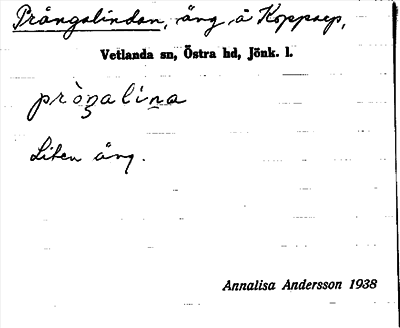 Prångalindan, äng å Kopparp,
Vetlanda sn, Östra hd, Jönk. l.
Liten äng.
Annalisa Andersson 1938